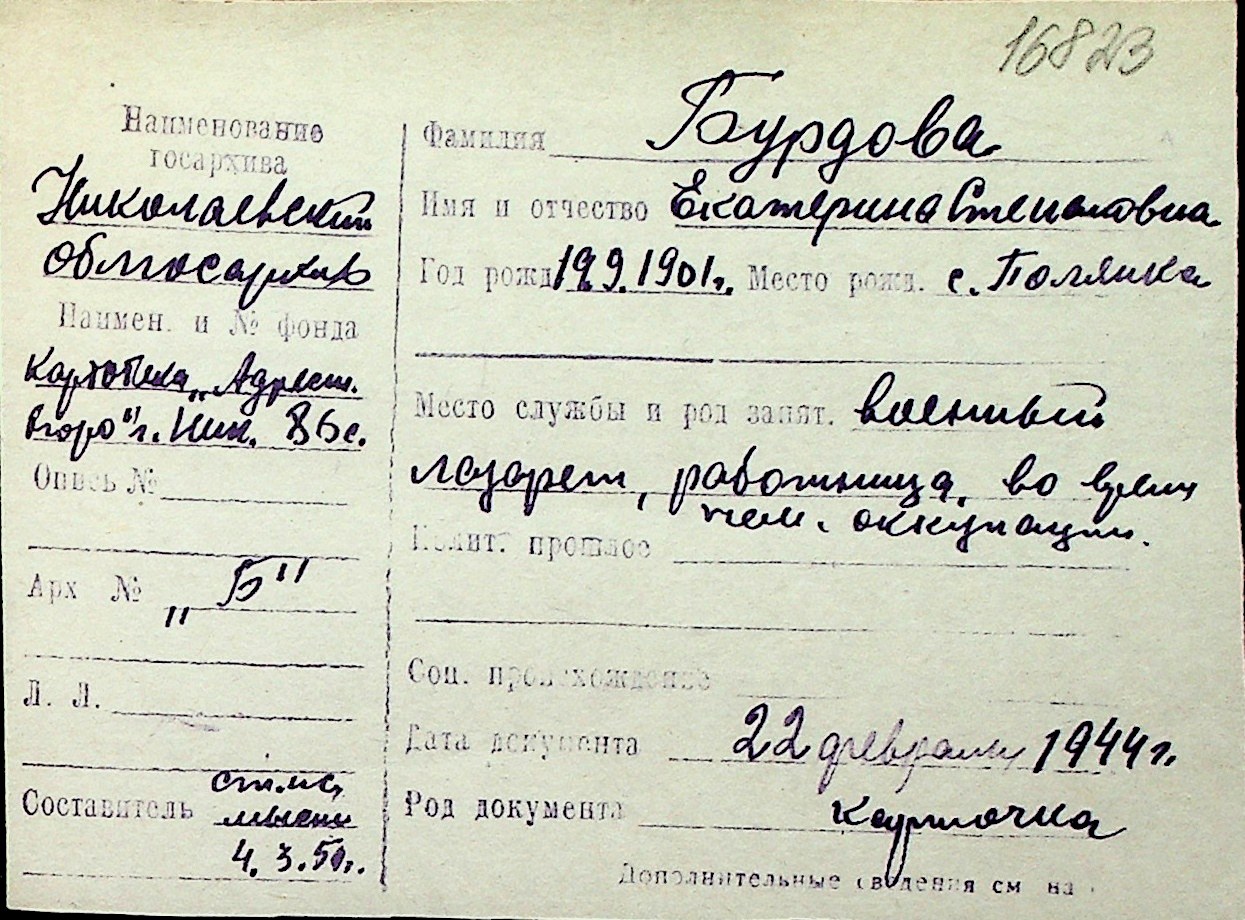 16823
Наименование
госархива
Николаевский
облгосархив
Наимен. и № фонда
Картотека „Адресн.
бюро" г. Ник. 86 с.
Опись №
Арх № „Б"
Л. Л.
Составитель
4.3.50г.
Фамилия Бурдова
Имя и отчество Екатерина Степановна
Год рожд 19.9.1901г. Место рожд. с. Полянка
Место службы и род занят. военный
лазарет, работница, во время
нем. оккупации.
Полит. прошлое
Соц. происхождение
Дата документа 22 февраля 1944г.
Род документа карточка
Дополнительные сведения см на